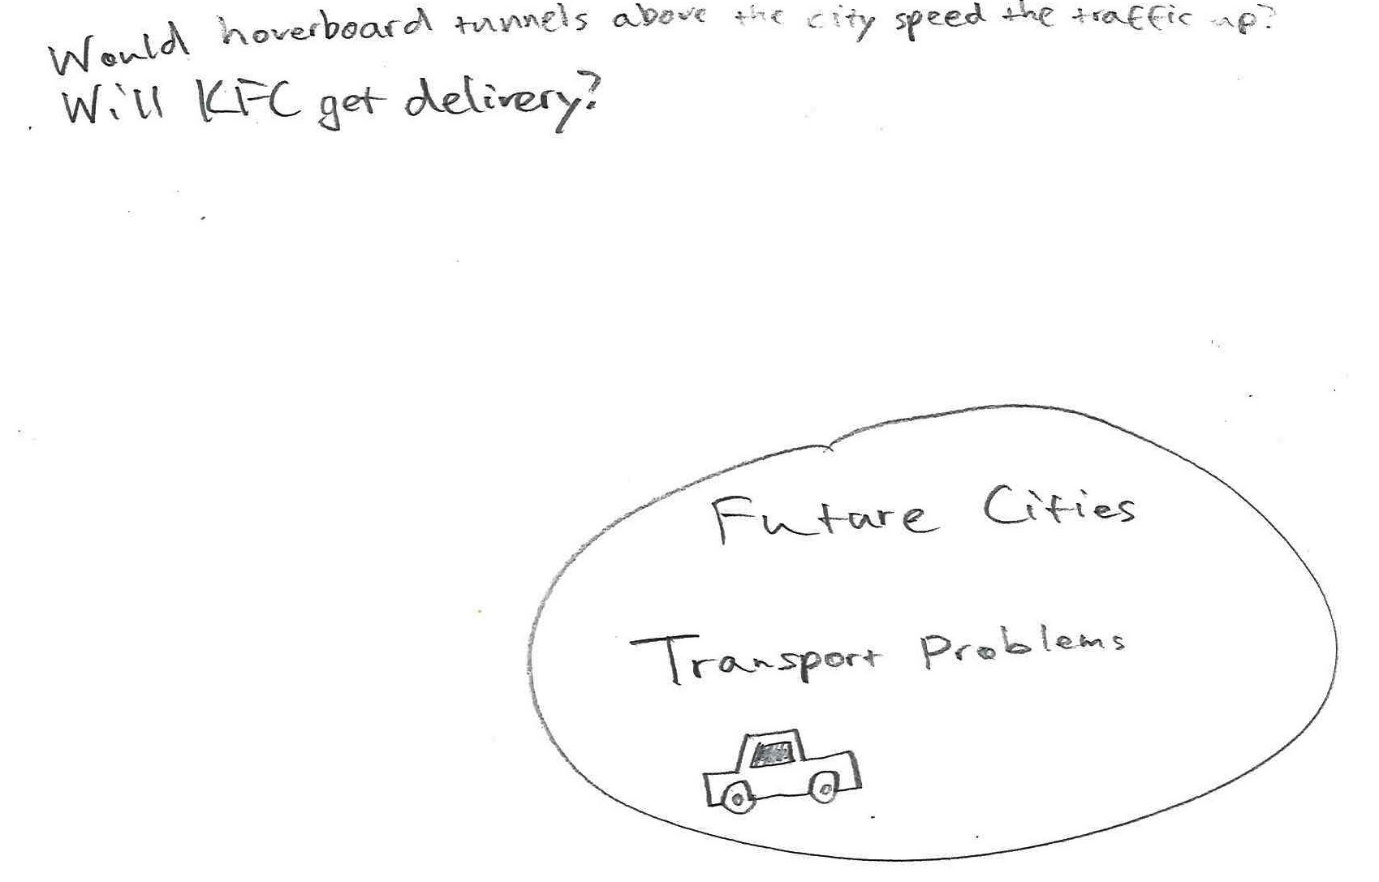 Would hoverboard tunnels above the city speed the traffic up?
Will KFC get delivery?
Future Cities
Transport Problems